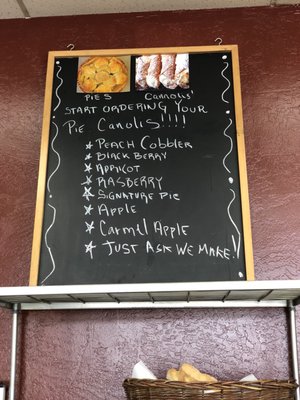 PIES CANNOLIS'
START ORDERING YOUR
PIE CANOLIS!!!!
PEACH COBBLER
BLACK BERRY
APRICOT
RASBERRY
SIGNATURE PIE
APPLE
CARMIL APPLE
JUST ASK WE MAKE!